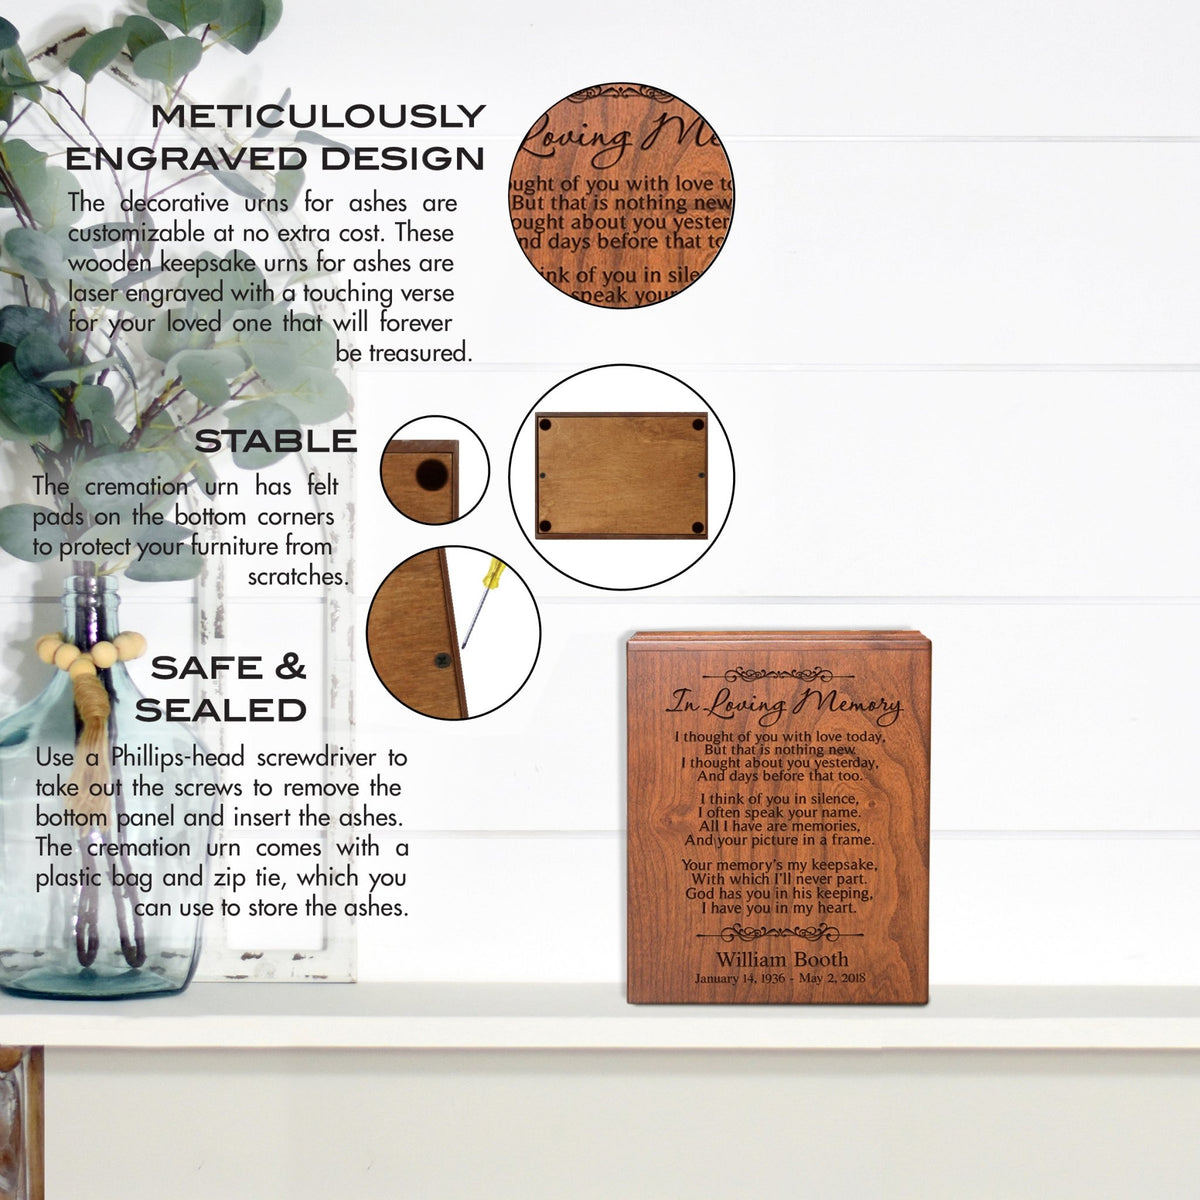 METICULOUSLY
ENGRAVED DESIGN
The decorative urns for ashes are
customizable at no extra cost. These
wooden keepsake urns for ashes are
laser engraved with a touching verse
for your loved one that will forever
be treasured.
Loving Me
ought of you with love to
But that is nothing new
ought about you yester
nd days before that to
ink of you in sile
speak your
STABLE
The cremation urn has felt
pads on the bottom corners
to protect your furniture from
scratches.
SAFE &
SEALED
Use a Phillips-head screwdriver to
take out the screws to remove the
bottom panel and insert the ashes.
The cremation urn comes with a
plastic bag and zip tie, which you
can use to store the ashes.
In Loving Memory
I thought of you with love today,
But that is nothing new.
I thought about you yesterday,
And days before that too.
I think of you in silence,
I often speak your name.
All I have are memories,
And your picture in a frame.
Your memory's my keepsake,
With which I'll never part.
God has you in his keeping,
I have you in my heart.
William Booth
January 14, 1936 - May 2, 2018